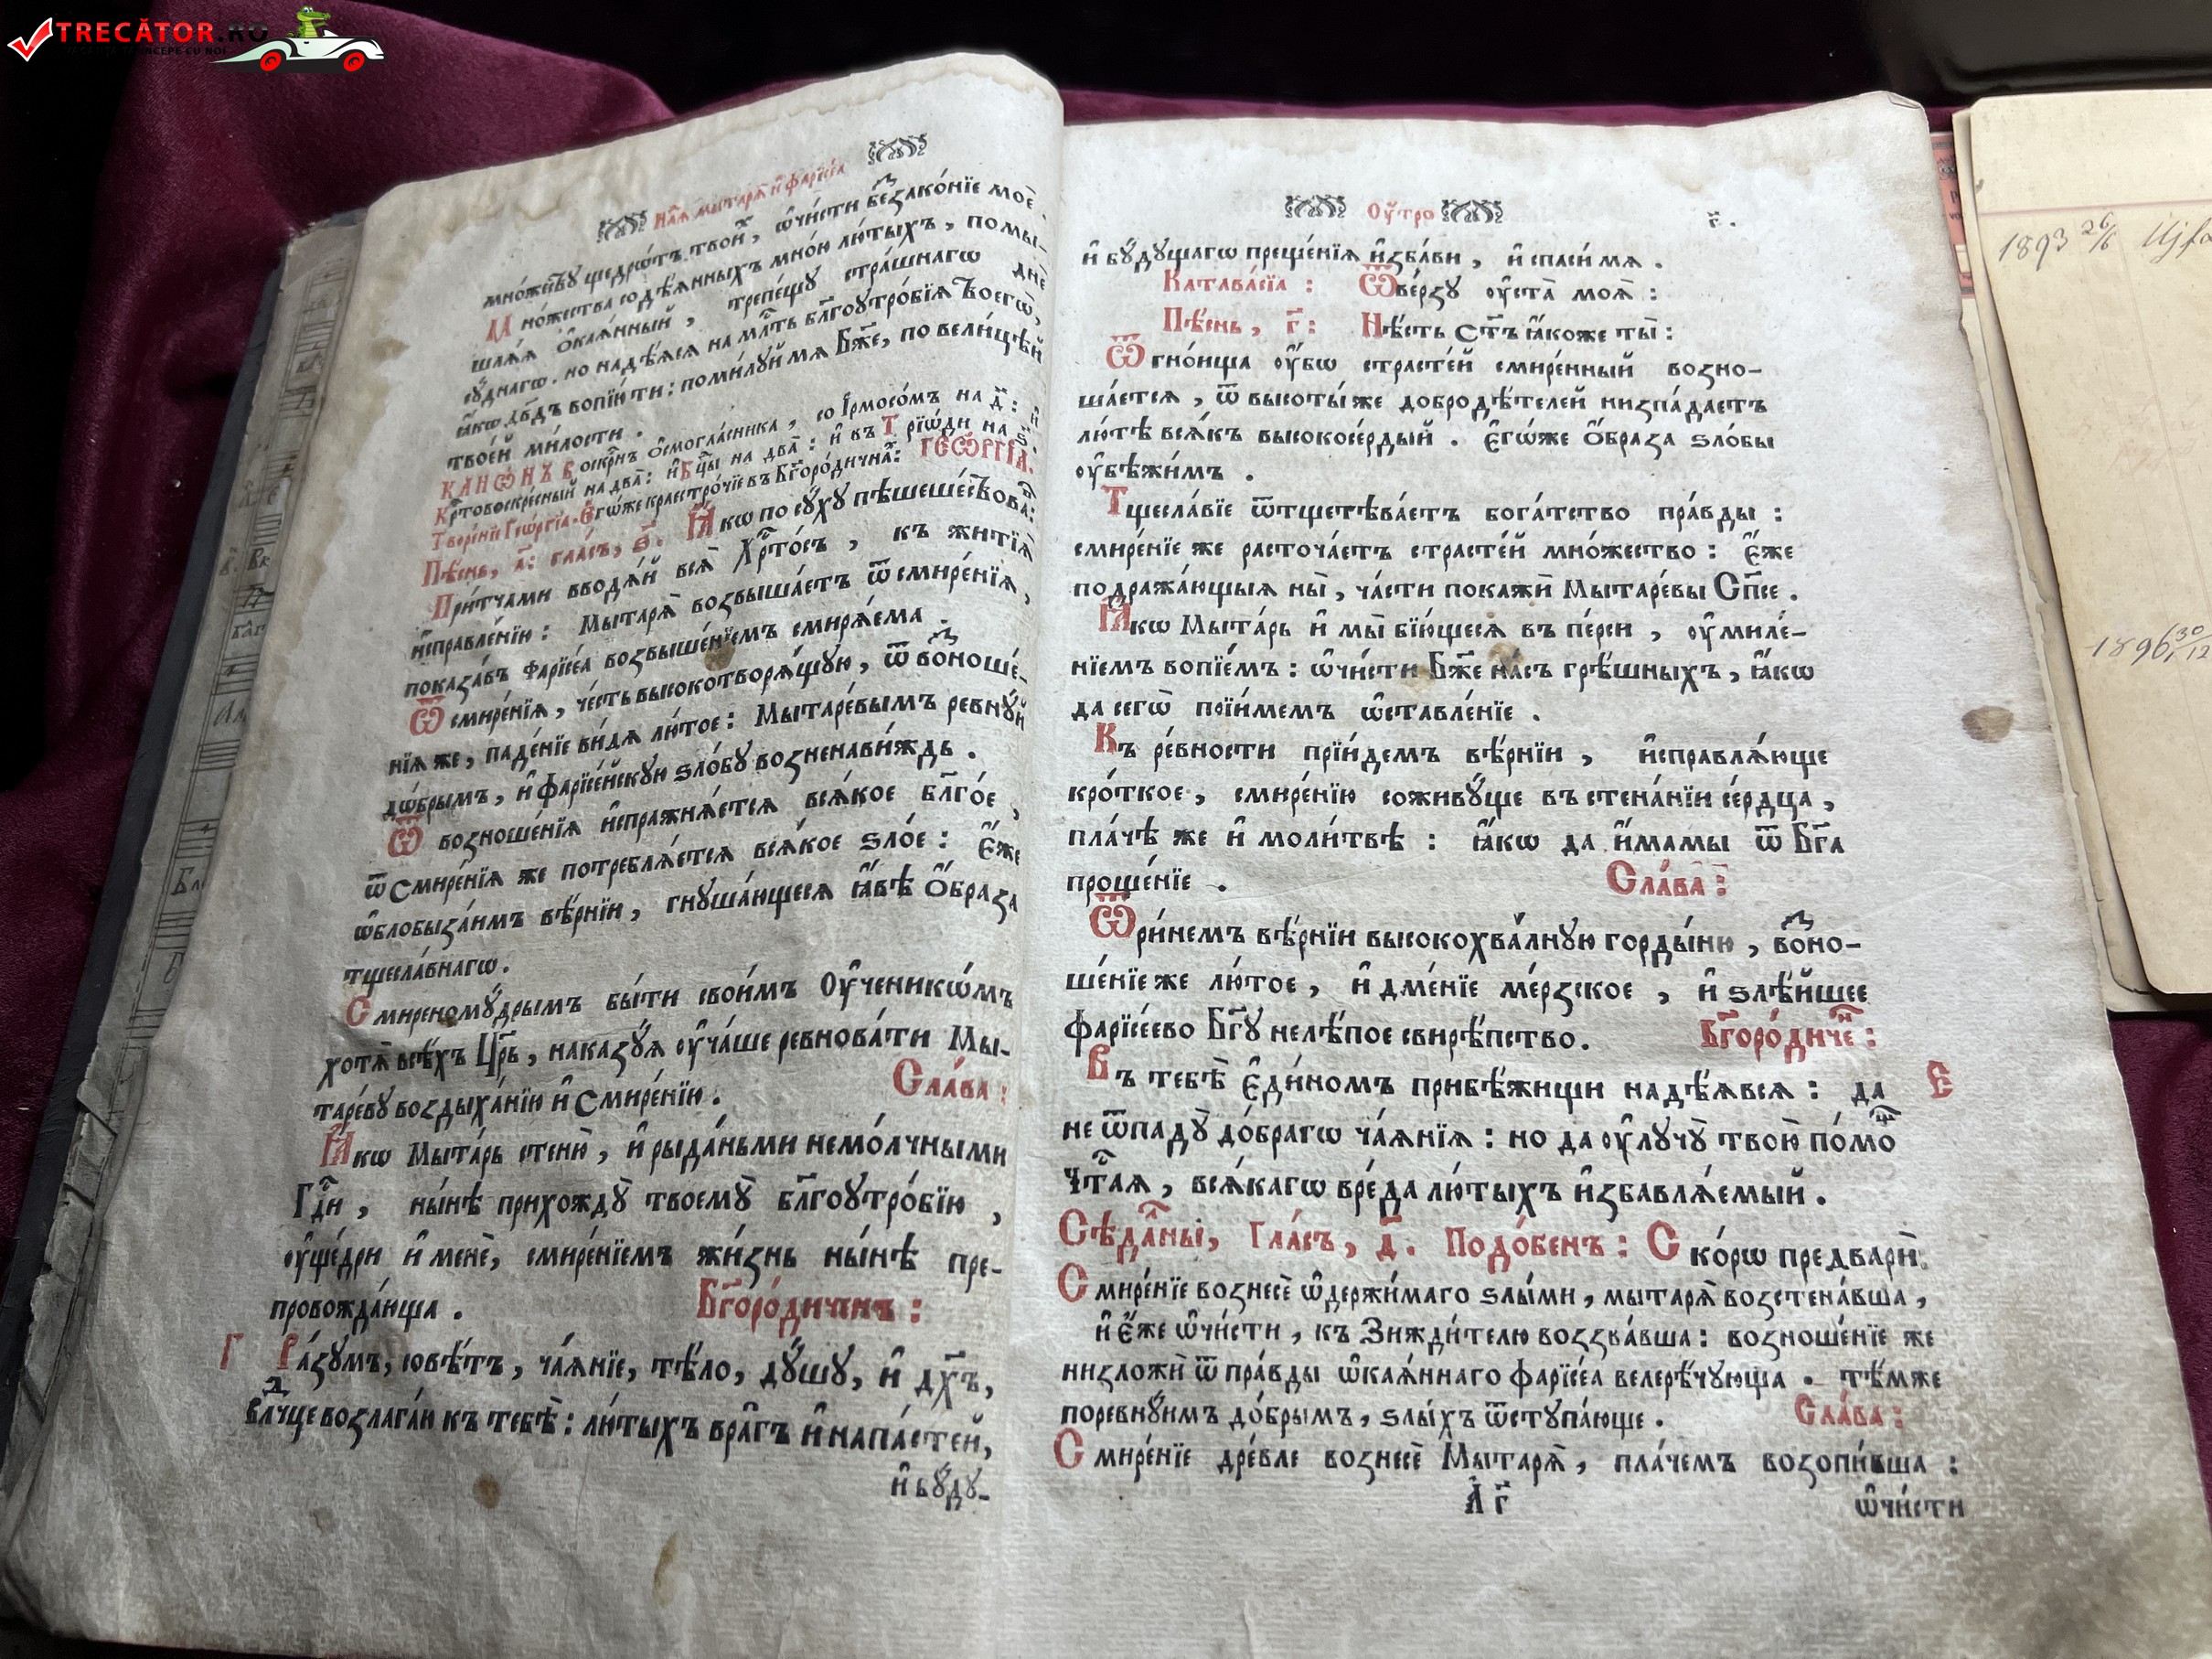 TRECĂTOR.RO
VACANȚA ÎNCEPE CU NOI
Нлⷧ҇ѧ мытарѧ̀ и҆ фарїсе́ѧ
мно́жествꙋ щедрѡ́тъ твои́хъ, ѡ҆чи́сти беззако́нїе моѐ.
Мно́жества содѣ́ѧнныхъ мно́ю лю́тыхъ, помы-
шлѧ́ѧ ѻ҆каѧ́нный, трепе́щꙋ стра́шнагѡ днѐ
сꙋ́днагѡ. но надѣ́ѧсѧ на млⷭ҇ть бл҃гоꙋтро́бїѧ твоегѡ̀,
ꙗ҆́кѡ дв҃дъ вопїю́ ти: поми́лꙋй мѧ Бж҃е, по вели́цѣй
твое́й ми́лости.
КАНѠ́НЪ Воскрⷭ҇нъ ѻ҆смогла́сника, со І҆рмосо́мъ на д҃: и҆
Крⷭ҇товоскре́сный на два̀: и҆ Бцⷣы на два̀: и҆ въ Трїѡ́ди на ѕ҃.
Творе́нїе Геѡ́ргїа. Є҆гѡ́же краестро́чїе въ Бг҃оро́дична: ГЕѠ́РГЇА.
Пѣ́снь, а҃: гла́съ, ѕ҃. Ꙗ҆́кѡ по сꙋ́хꙋ пѣшеше́ствовавъ:
При́тчами вводѧ́й всѧ̀ Хрⷭ҇то́съ, къ житїѧ̀
и҆справле́нїю: Мытарѧ̀ возвыша́етъ ѿ смире́нїѧ,
показа́въ фарїсе́а возвыше́нїемъ смирѧ́ема.
Ѿ смире́нїѧ, че́сть высокотворѧ́щꙋю, ѿ возноше́-
нїѧ же, паде́нїе ви́дѧ лю́тое: Мытаре́вымъ ревнꙋ́й
дѡ́брымъ, и҆ фарїсе́йскꙋю ѕло́бꙋ возненави́ждь.
Ѿ возноше́нїѧ и҆спражнѧ́етсѧ всѧ́кое бл҃го́е,
ѿ Смире́нїѧ же потреблѧ́етсѧ всѧ́кое ѕло́е: Є҆́же
ѡ҆блобыза́имъ вѣ́рнїи, гнꙋша́ющесѧ ꙗ҆́вѣ ѻ҆́браза
тщесла́внагѡ.
Смиреномꙋ́дрымъ бы́ти свои́мъ Ѹ҆ченикѡ́мъ
хотѧ̀ всѣ́хъ Цр҃ь, наказꙋ́ѧ ᲂу҆ча́ше ревнова́ти Мы-
таре́вꙋ воздыха́нїю и҆ Смире́нїю. Сла́ва:
Ꙗ҆́кѡ Мыта́рь стеню̀, и҆ рыда́ньми немо́лчными
Гдⷭ҇и, ны́нѣ прихождꙋ̀ твоемꙋ̀ бл҃гоꙋтро́бїю,
ᲂу҆ще́дри и҆ менѐ, смире́нїемъ жи́знь ны́нѣ пре-
провожда́юща. Бг҃оро́диченъ:
Г Ра́зꙋмъ, совѣ́тъ, ча́ѧнїе, тѣ́ло, дꙋ́шꙋ, и҆ дх҃ъ,
влⷣчце возлага́ю къ тебѣ̀: лю́тыхъ вра̑гъ и҆ напа́стей,
и҆ бꙋ́дꙋ-
Ѹ҆́тро
г҃.
и҆ бꙋ́дꙋщагѡ преще́нїѧ и҆зба́ви, и҆ спаси́ мѧ.
Катава́сїа: Ѿве́рзꙋ ᲂу҆ста̀ моѧ̑:
Пѣ́снь, г҃: Нѣ́сть Ст҃ъ ꙗ҆́коже ты̀:
Ѿ гно́ища ᲂу҆́бѡ страсте́й смире́нный возно-
ша́етсѧ, ѿ высоты́ же добродѣ́телей низпа́даетъ
лю́тѣ всѧ́къ высокосе́рдый. Є҆гѡ́же ѻ҆́браза ѕло́бы
ᲂу҆бѣжи́мъ.
Тщесла́вїе ѿтщетѣва́етъ бога́тство пра́вды:
смире́нїе же расточа́етъ страсте́й мно́жество: Є҆́же
подража́ющыѧ ны̀, ча́сти покажѝ Мытаре́вы Сп҃се.
Ꙗ҆́кѡ Мыта́рь и҆ мы̀ бїю́щесѧ въ пе́рси, ᲂу҆миле́-
нїемъ вопїе́мъ: ѡ҆чи́сти Бж҃е на́съ грѣ́шныхъ, ꙗ҆́кѡ
да сегѡ̀ прїи́мемъ ѡ҆ставле́нїе.
Къ ре́вности прїи́демъ вѣ́рнїи, и҆справлѧ́юще
кро́ткое, смире́нїю соживꙋ́ще въ стена́нїи се́рдца,
пла́чѣ же и҆ моли́твѣ: ꙗ҆́кѡ да и҆́мамы ѿ Бг҃а
проще́нїе. Сла́ва:
Ѿри́немъ вѣ́рнїи высокохва́лнꙋю горды́ню, возно-
ше́нїе же лю́тое, и҆ дме́нїе ме́рзское, и҆ ѕлѣ́йшее
фарїсе́ево Бг҃ꙋ нелѣ́пое свирѣ́пство. Бг҃оро́диченъ:
Въ тебѣ̀ Є҆ди́номъ прибѣ́жищи надѣ́ѧвсѧ: да Е
не ѿпадꙋ̀ до́брагѡ ча́ѧнїѧ: но да ᲂу҆лꙋчꙋ̀ твою̀ по́мощь
Чтⷭ҇аѧ, всѧ́кагѡ вре́да лю́тыхъ и҆збавлѧ́емый.
Сѣда́льны, Гла́съ, д҃. Подо́бенъ: Ско́рѡ предварѝ:
Смире́нїе вознесѐ ѡ҆держи́маго ѕлы́ми, мытарѧ̀ возстена́вша,
и҆ Є҆́же ѡ҆чи́сти, къ Зижди́телю воззва́вша: возноше́нїе же
низложѝ ѿ пра́вды ѡ҆каѧ́ннаго фарїсе́а велерѣ́чꙋюща. тѣ́мже
поревнꙋ́имъ до́брымъ, ѕлы́хъ ѿстꙋпа́юще. Сла́ва:
Смире́нїе дре́вле вознесѐ Мытарѧ̀, пла́чемъ возопи́вша:
А г҃
ѡ҆чи́сти
1893 26/6 Ujfa
1896 30/12